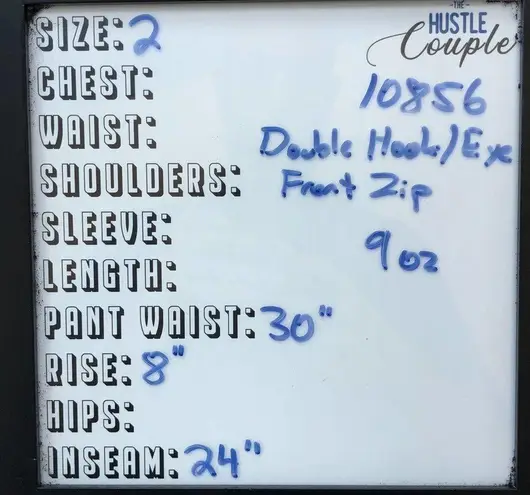 -THE-
HUSTLE
Couple
SIZE: 2
CHEST:
10856
WAIST:
Double Hook/Eye
SHOULDERS:
Front Zip
SLEEVE:
9 oz
LENGTH:
PANT WAIST: 30"
RISE: 8"
HIPS:
INSEAM: 24"